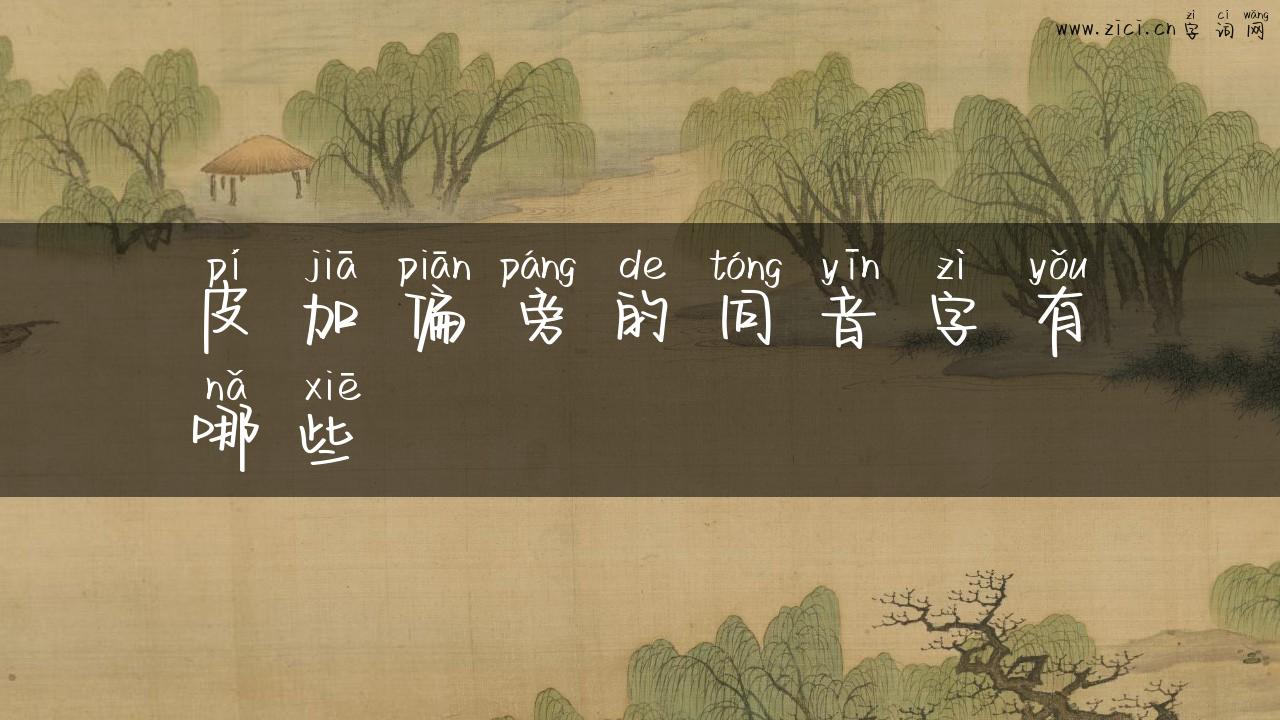 zì cí wǎng
www.zici.cn 字 词 网
pí jiā piān páng de tóng yīn zì yǒu
皮 加 偏 旁 的 同 音 字 有
nǎ xiē
哪 些